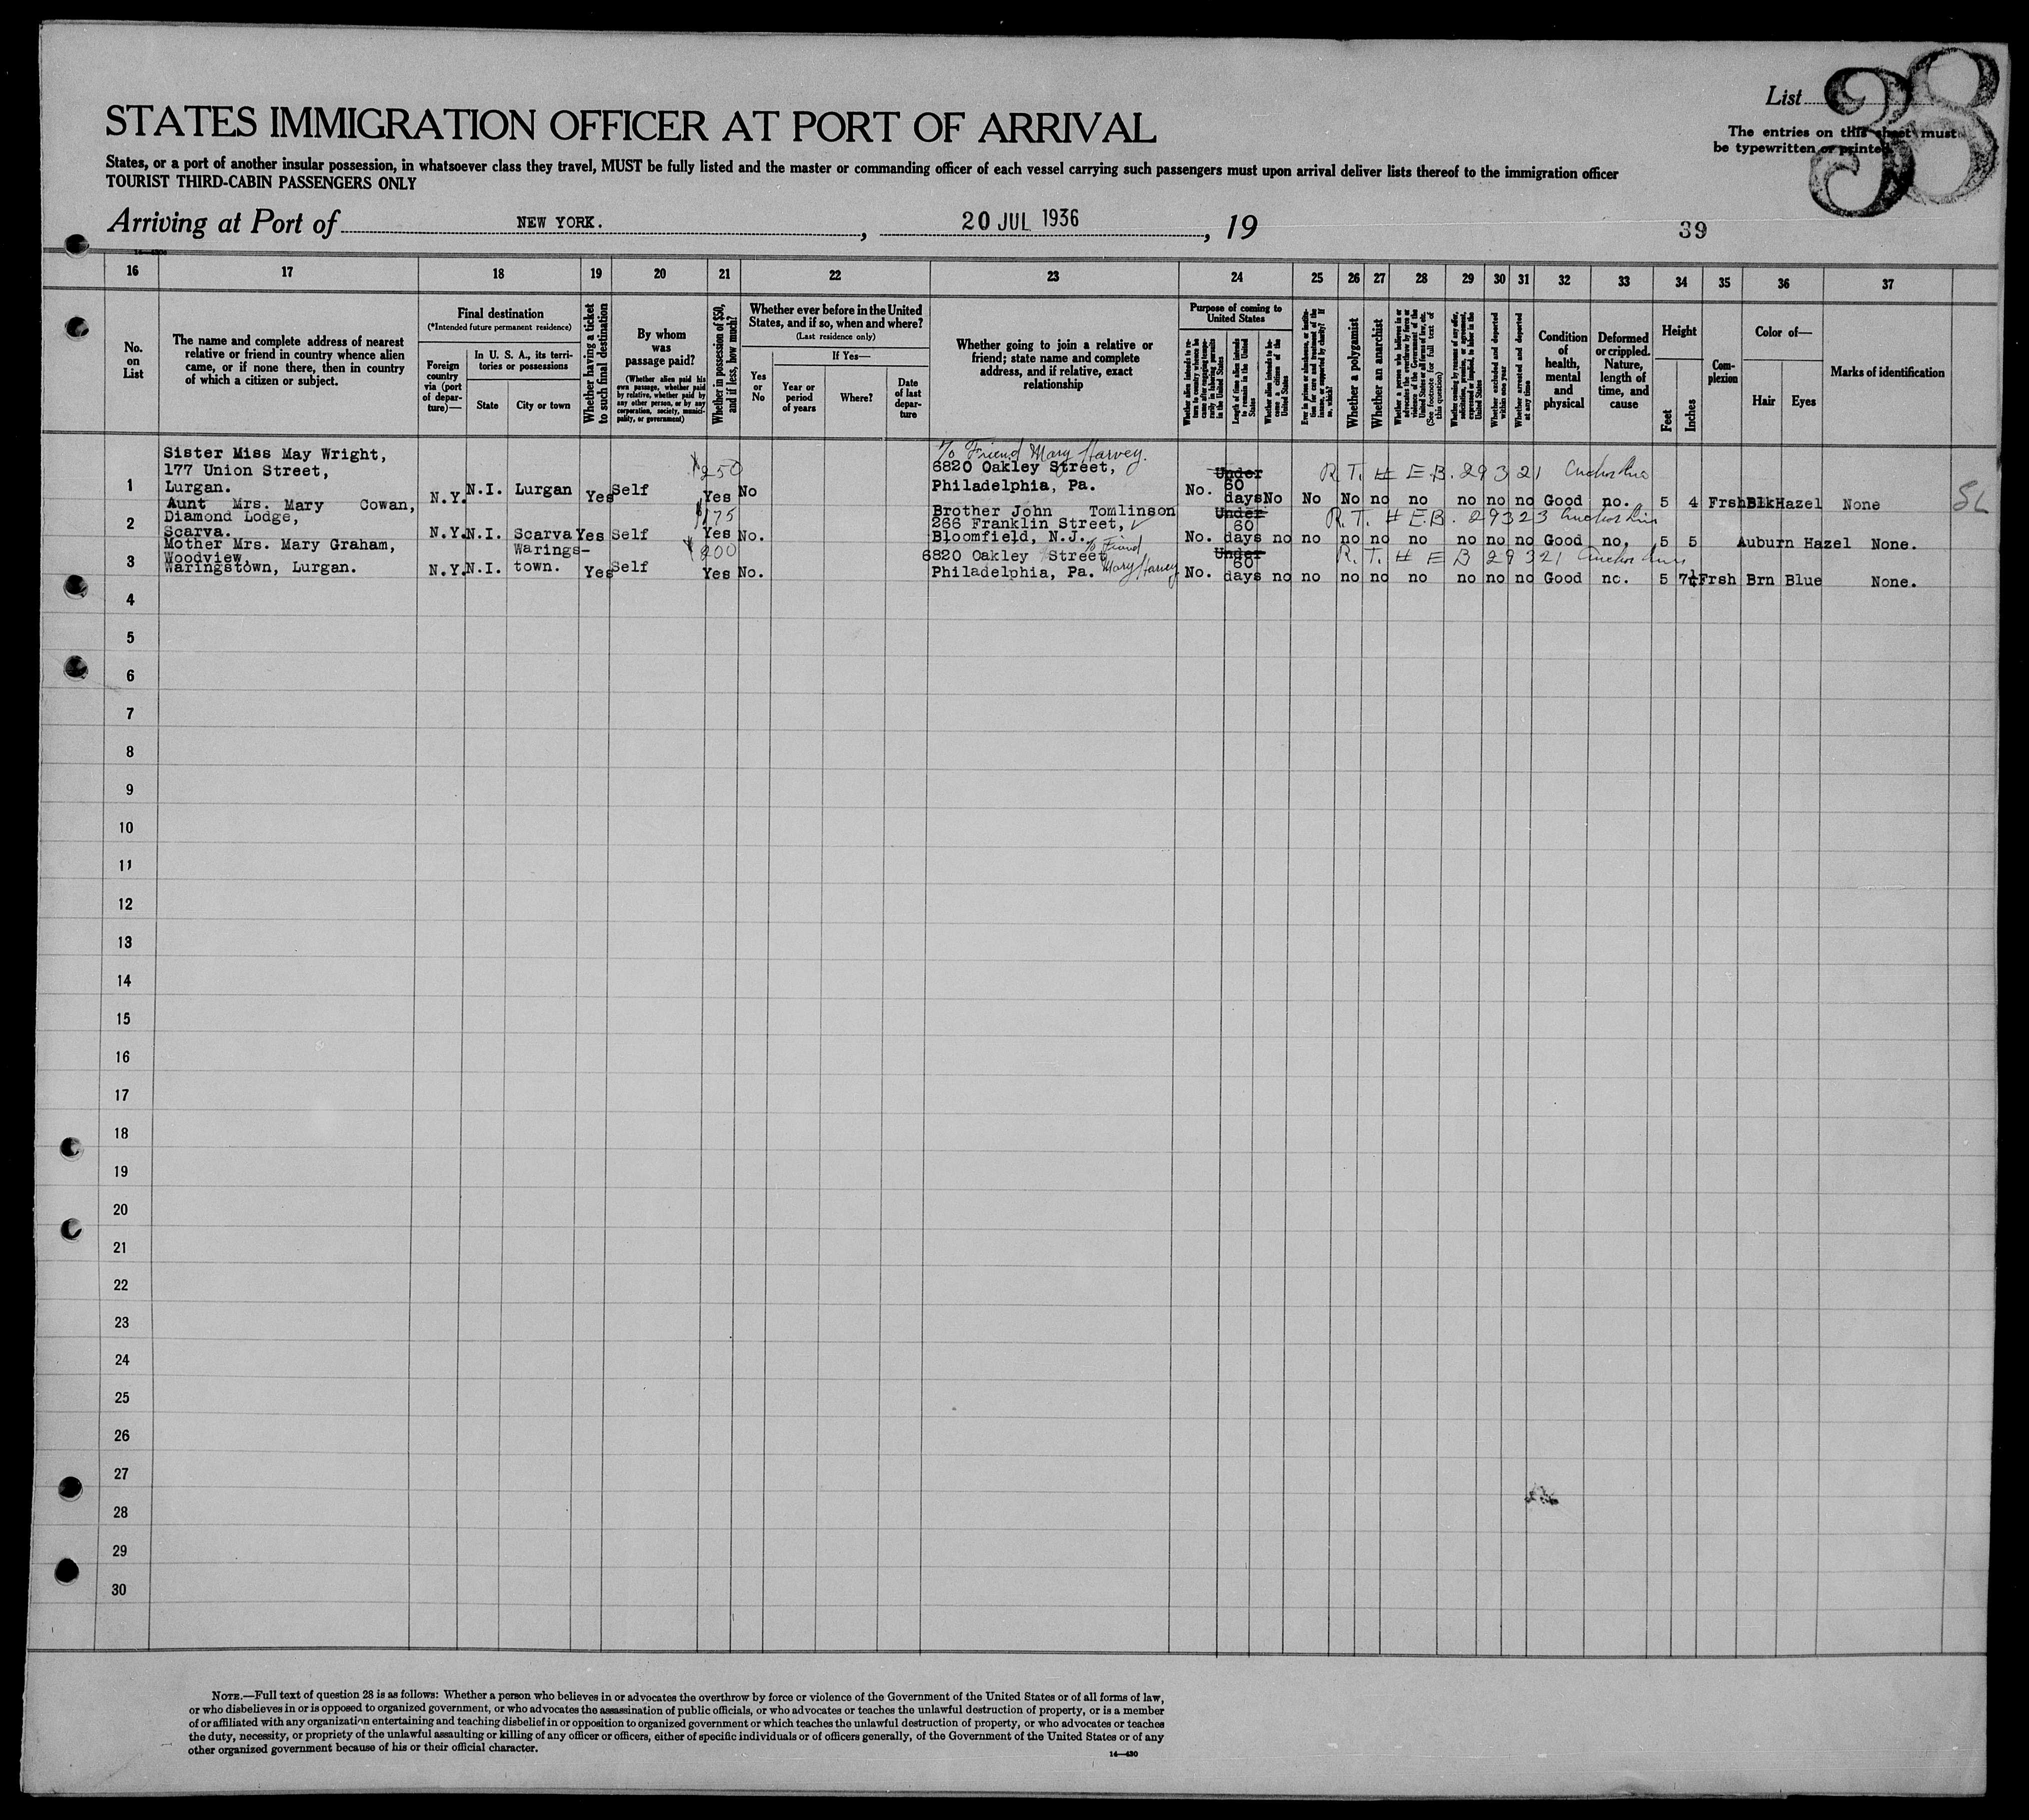 List 38
STATES IMMIGRATION OFFICER AT PORT OF ARRIVAL
The entries on this sheet must
be typewritten or printed
States, or a port of another insular possession, in whatsoever class they travel, MUST be fully listed and the master or commanding officer of each vessel carrying such passengers must upon arrival deliver lists thereof to the immigration officer
TOURIST THIRD-CABIN PASSENGERS ONLY
Arriving at Port of NEW YORK. , 20 JUL 1936 , 19
39
16 17 18 19 20 21 22 23 24 25 26 27 28 29 30 31 32 33 34 35 36 37
No. on List
The name and complete address of nearest
relative or friend in country whence alien
came, or if none there, then in country
of which a citizen or subject.
Final destination
(*Intended future permanent residence)
Foreign country via (port of departure)—
In U. S. A., its territories or possessions
State
City or town
Whether having a ticket to such final destination
By whom was passage paid?
(Whether alien paid his own passage, whether paid by relative, whether paid by any other person, or by any corporation, society, municipality, or government)
Whether in possession of $50, and if less, how much?
Whether ever before in the United
States, and if so, when and where?
(Last residence only)
Yes or No
If Yes—
Year or period of years
Where?
Date of last departure
Whether going to join a relative or
friend; state name and complete
address, and if relative, exact
relationship
Purpose of coming to United States
Length of time alien intends to remain in the United States
Whether alien intends to become a citizen of the United States
Whether a polygamist
Whether an anarchist
(See footnote for full text of this question)
Whether excluded and deported within one year
Whether arrested and deported at any time
Condition of health, mental and physical
Deformed or crippled. Nature, length of time, and cause
Height
Feet
Inches
Complexion
Color of—
Hair
Eyes
Marks of identification
1
Sister Miss May Wright,
177 Union Street,
Lurgan.
N.Y. N.I. Lurgan Yes Self $250 Yes No
To Friend Mary Harvey.
6820 Oakley Street,
Philadelphia, Pa.
No. Under 60 days No No No no no no no no Good no. 5 4 Frsh Blk Hazel None
R.T. # E.B. 29321 Anchor Line
SL
2
Aunt Mrs. Mary Cowan,
Diamond Lodge,
Scarva.
N.Y. N.I. Scarva Yes Self $175 Yes No.
Brother John Tomlinson
266 Franklin Street,
Bloomfield, N.J.
No. Under 60 days no no no no no no no no Good no. 5 5 Auburn Hazel None.
R.T. # E.B. 29323 Anchor Line
3
Mother Mrs. Mary Graham,
Woodview,
Waringstown, Lurgan.
N.Y. N.I. Warings-
town. Yes Self $200 Yes No.
To Friend
6820 Oakley Street
Philadelphia, Pa. Mary Harvey
No. Under 60 days no no no no no no no no Good no. 5 7½ Frsh Brn Blue None.
R.T. # E B 29321 Anchor Line
4
5
6
7
8
9
10
11
12
13
14
15
16
17
18
19
20
21
22
23
24
25
26
27
28
29
30
NOTE.—Full text of question 28 is as follows: Whether a person who believes in or advocates the overthrow by force or violence of the Government of the United States or of all forms of law,
or who disbelieves in or is opposed to organized government, or who advocates the assassination of public officials, or who advocates or teaches the unlawful destruction of property, or is a member
of or affiliated with any organization entertaining and teaching disbelief in or opposition to organized government or which teaches the unlawful destruction of property, or who advocates or teaches
the duty, necessity, or propriety of the unlawful assaulting or killing of any officer or officers, either of specific individuals or of officers generally, of the Government of the United States or of any
other organized government because of his or their official character.
14—430